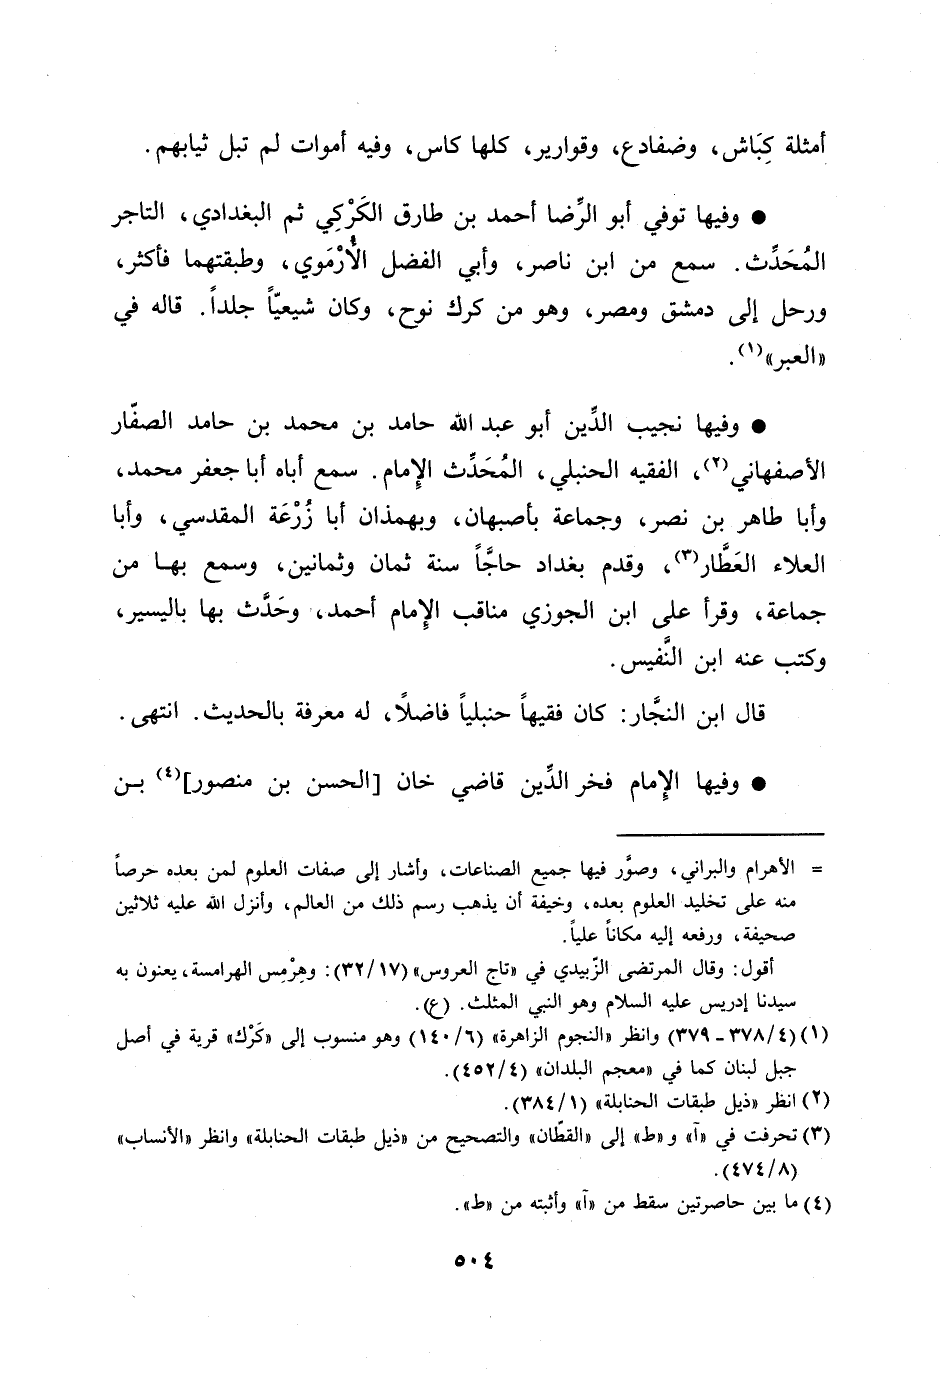 أمثلة كِبَاش، وضفادع، وقوارير، كلها كاس، وفيه أموات لم تبل ثيابهم.
● وفيها توفي أبو الرِّضا أحمد بن طارق الكَرْكِي ثم البغدادي، التاجر
المُحَدِّث. سمع من ابن ناصر، وأبي الفضل الأُرْمَوي، وطبقتهما فأكثر،
ورحل إلى دمشق ومصر، وهو من كرك نوح، وكان شيعيّاً جلداً. قاله في
«العبر»(١).
● وفيها نجيب الدِّين أبو عبد الله حامد بن محمد بن حامد الصفّار
الأصفهاني(٢)، الفقيه الحنبلي، المُحَدِّث الإِمام. سمع أباه أبا جعفر محمد،
وأبا طاهر بن نصر، وجماعة بأصبهان، وبهمذان أبا زُرْعَة المقدسي، وأبا
العلاء العَطَّار(٣)، وقدم بغداد حاجَّاً سنة ثمان وثمانين، وسمع بها من
جماعة، وقرأ على ابن الجوزي مناقب الإِمام أحمد، وحَدَّث بها باليسير،
وكتب عنه ابن النَّفيس.
قال ابن النجَّار: كان فقيهاً حنبلياً فاضلًا، له معرفة بالحديث. انتهى.
● وفيها الإِمام فخر الدِّين قاضي خان [الحسن بن منصور](٤) بن
= الأهرام والبراني، وصوَّر فيها جميع الصناعات، وأشار إلى صفات العلوم لمن بعده حرصاً
منه على تخليد العلوم بعده، وخيفة أن يذهب رسم ذلك من العالم، وأنزل الله عليه ثلاثين
صحيفة، ورفعه إليه مكاناً علياً.
أقول: وقال المرتضى الزَّبيدي في «تاج العروس» (٣٢/١٧): وهِرْمِس الهرامسة، يعنون به
سيدنا إدريس عليه السلام وهو النبي المثلث. (ع).
(١) (٣٧٨/٤ ـ ٣٧٩) وانظر «النجوم الزاهرة» (١٤٠/٦) وهو منسوب إلى «كَرْك» قرية في أصل
جبل لبنان كما في «معجم البلدان» (٤٥٢/٤).
(٢) انظر «ذيل طبقات الحنابلة» (٣٨٤/١).
(٣) تحرفت في «آ» و «ط» إلى «القطّان» والتصحيح من «ذيل طبقات الحنابلة» وانظر «الأنساب»
(٤٧٤/٨).
(٤) ما بين حاصرتين سقط من «آ» وأثبته من «ط».
٥٠٤